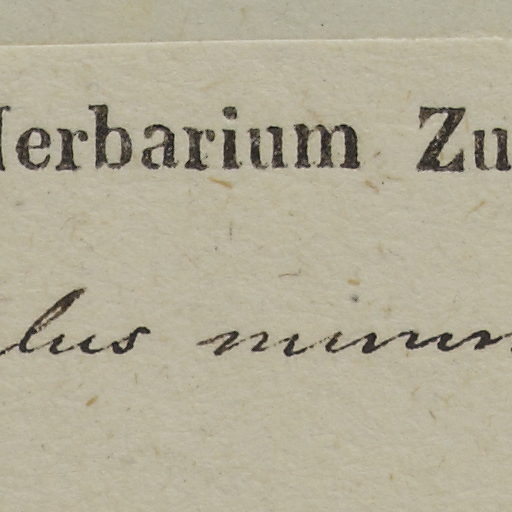 Herbarium Zu
lus minim